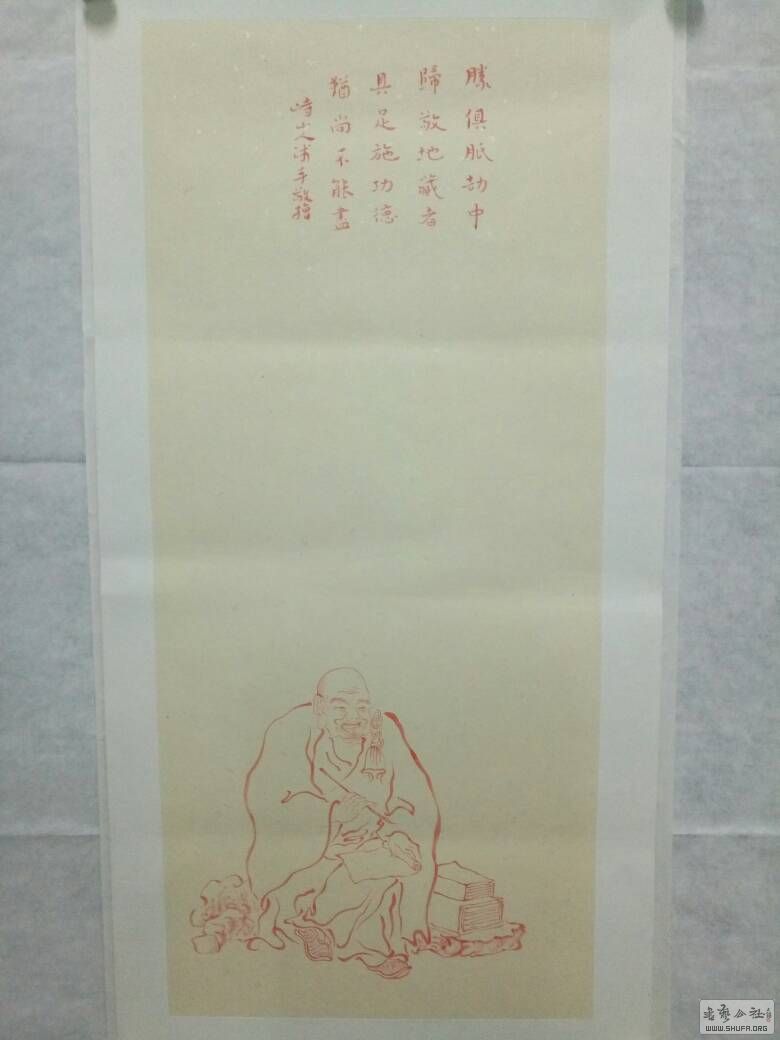 勝俱胝劫中
歸敬地藏者
具足施功德
猶尚不能盡
沐手敬繪
書藝公社
WWW.SHUFA.ORG